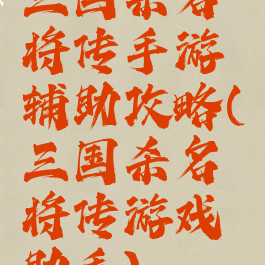 三国杀名
将传手游
辅助攻略(
三国杀名
将传游戏
助手)